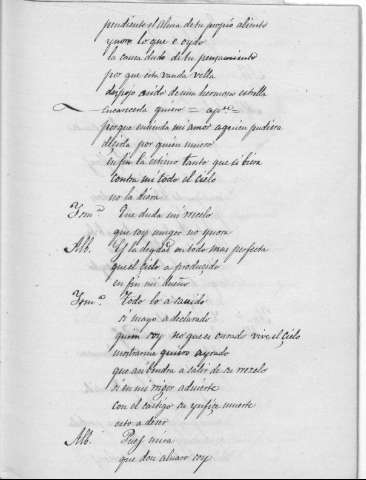 pendiente el Alma de tu propio aliento
ynoro lo que e oydo
la causa dudo de tu pensamiento
por que esta vanda vella
despojo asido de una hermosa estrella
encarecerla quiero = ap.te =
porque entienda mi amor a quien pudiera
decirla por quien muero
en fin la estimo tanto que si biera
contra mi todo el Cielo
no la diera
Fom.º Que duda mi recelo
que soy muger no ynora
Alb. Es la deydad en todo mas perfecta
que el Cielo a produçido
en fin mi dueño
Fom.º Todo lo a sauido
si mayo a declarado
quien soy no que es onrado vive el Cielo
mostrarme quiero ayrado
que asi bendra a saler de su recelo
si en mi rigor advierte
con el castigo su ynfiçe muerte
esto a decir
Alb. Pues mira
que don alvaro soy